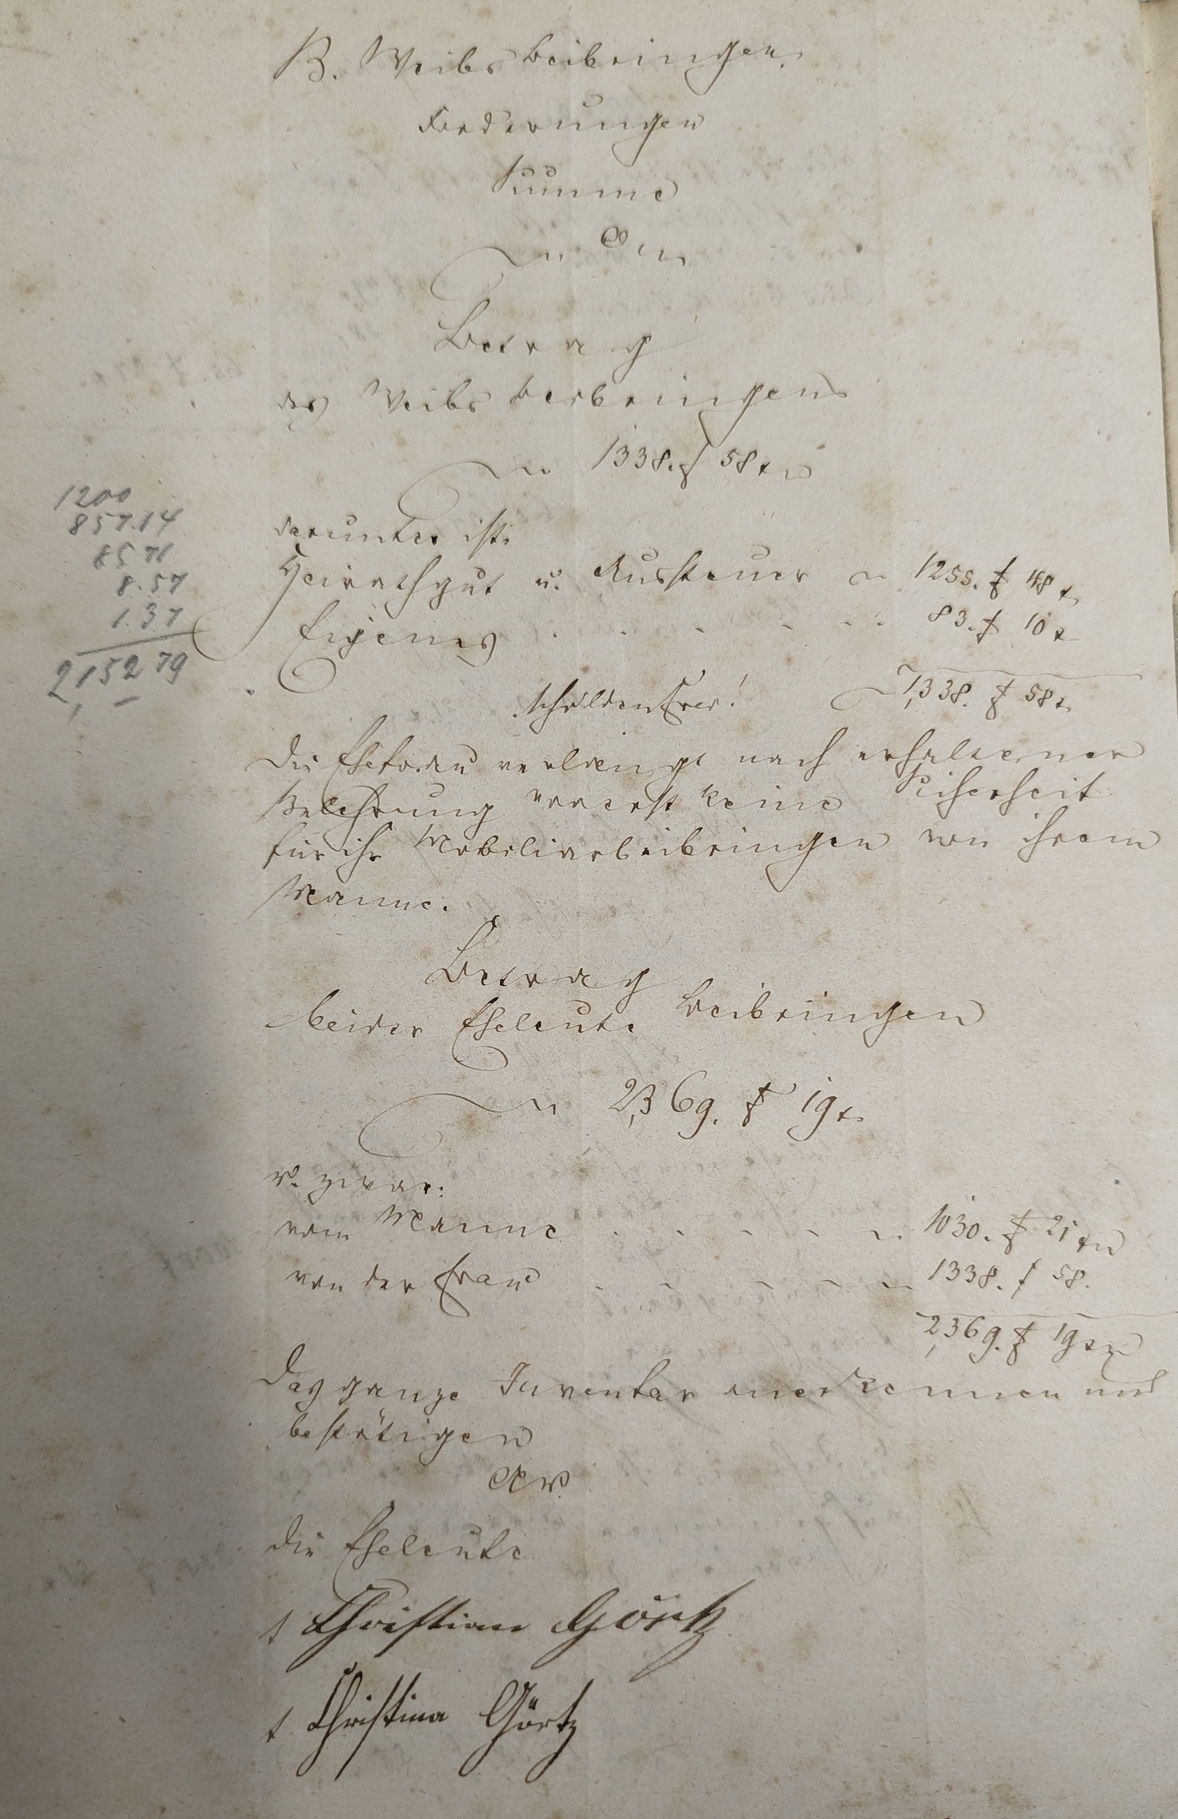 B. Weibsbeibringen.
Forderungen
Summe
Betrag
des Weibsbeibringens
1338. f 58 x
1200
857.14
85 71
8.57
1.37
2,152 79
darunter ist:
Heirathgut u. Aussteuer 1255. f 48 x
Eigenes . . . . . 83. f 10 x
Schuldenfrei! 1,338. f 58 x
Die Ehefrau verlangt nach erhaltener
Belehrung vorerst keine Sicherheit
für ihr Mobiliarbeibringen von ihrem
Manne.
Betrag
beider Eheleute Beibringen
2,369. f 19 x
u. zwar:
vom Manne . . . . . 1030. f 21 x
von der Frau . . . . . 1338. f 58.
2,369. f 19 x
Das ganze Inventar anerkennen und
bestätigen
die Eheleute
t Christian Görtz
t Christina Görtz